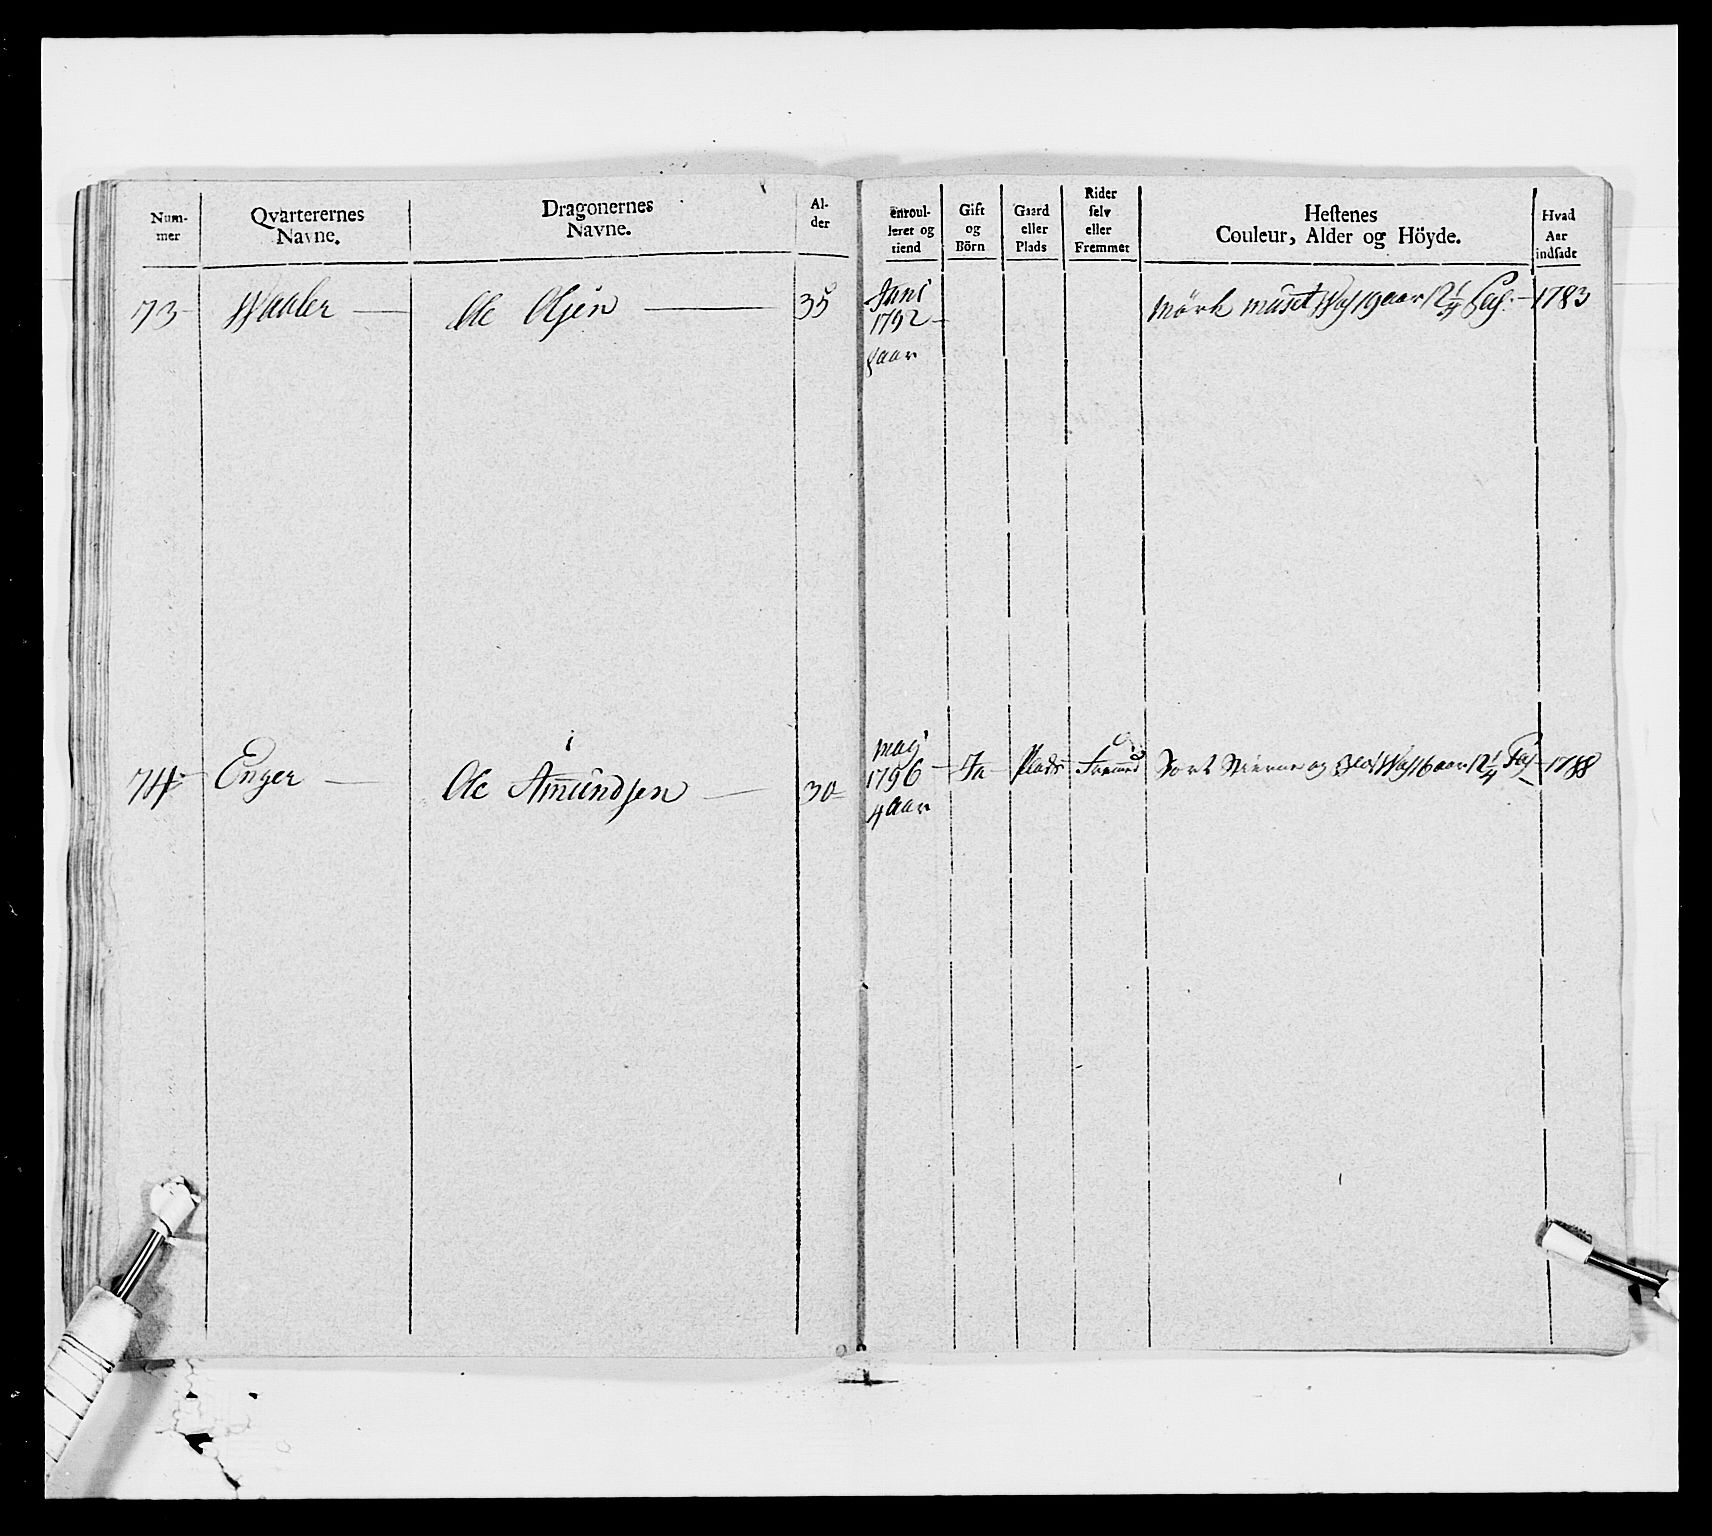 Num-
mer
Qvarterernes
Navne.
Dragonernes
Navne.
Al-
der
enroul-
leret og
tiend
Gift
og
Börn
Gaard
eller
Plads
Rider
selv
eller
Fremmet
Hestenes
Couleur, Alder og Höyde.
Hvad
Aar
indsadt
73 Waaler Ole Olsen 35
Juni
1792
aar
Mörk muset 19 aar 12 1/4 1783
74 Enger Ole Amundsen 30
maj
1796
4 aar
Ja Plads Fremed Sort Stierne og 16 aar 12 1/4 1788